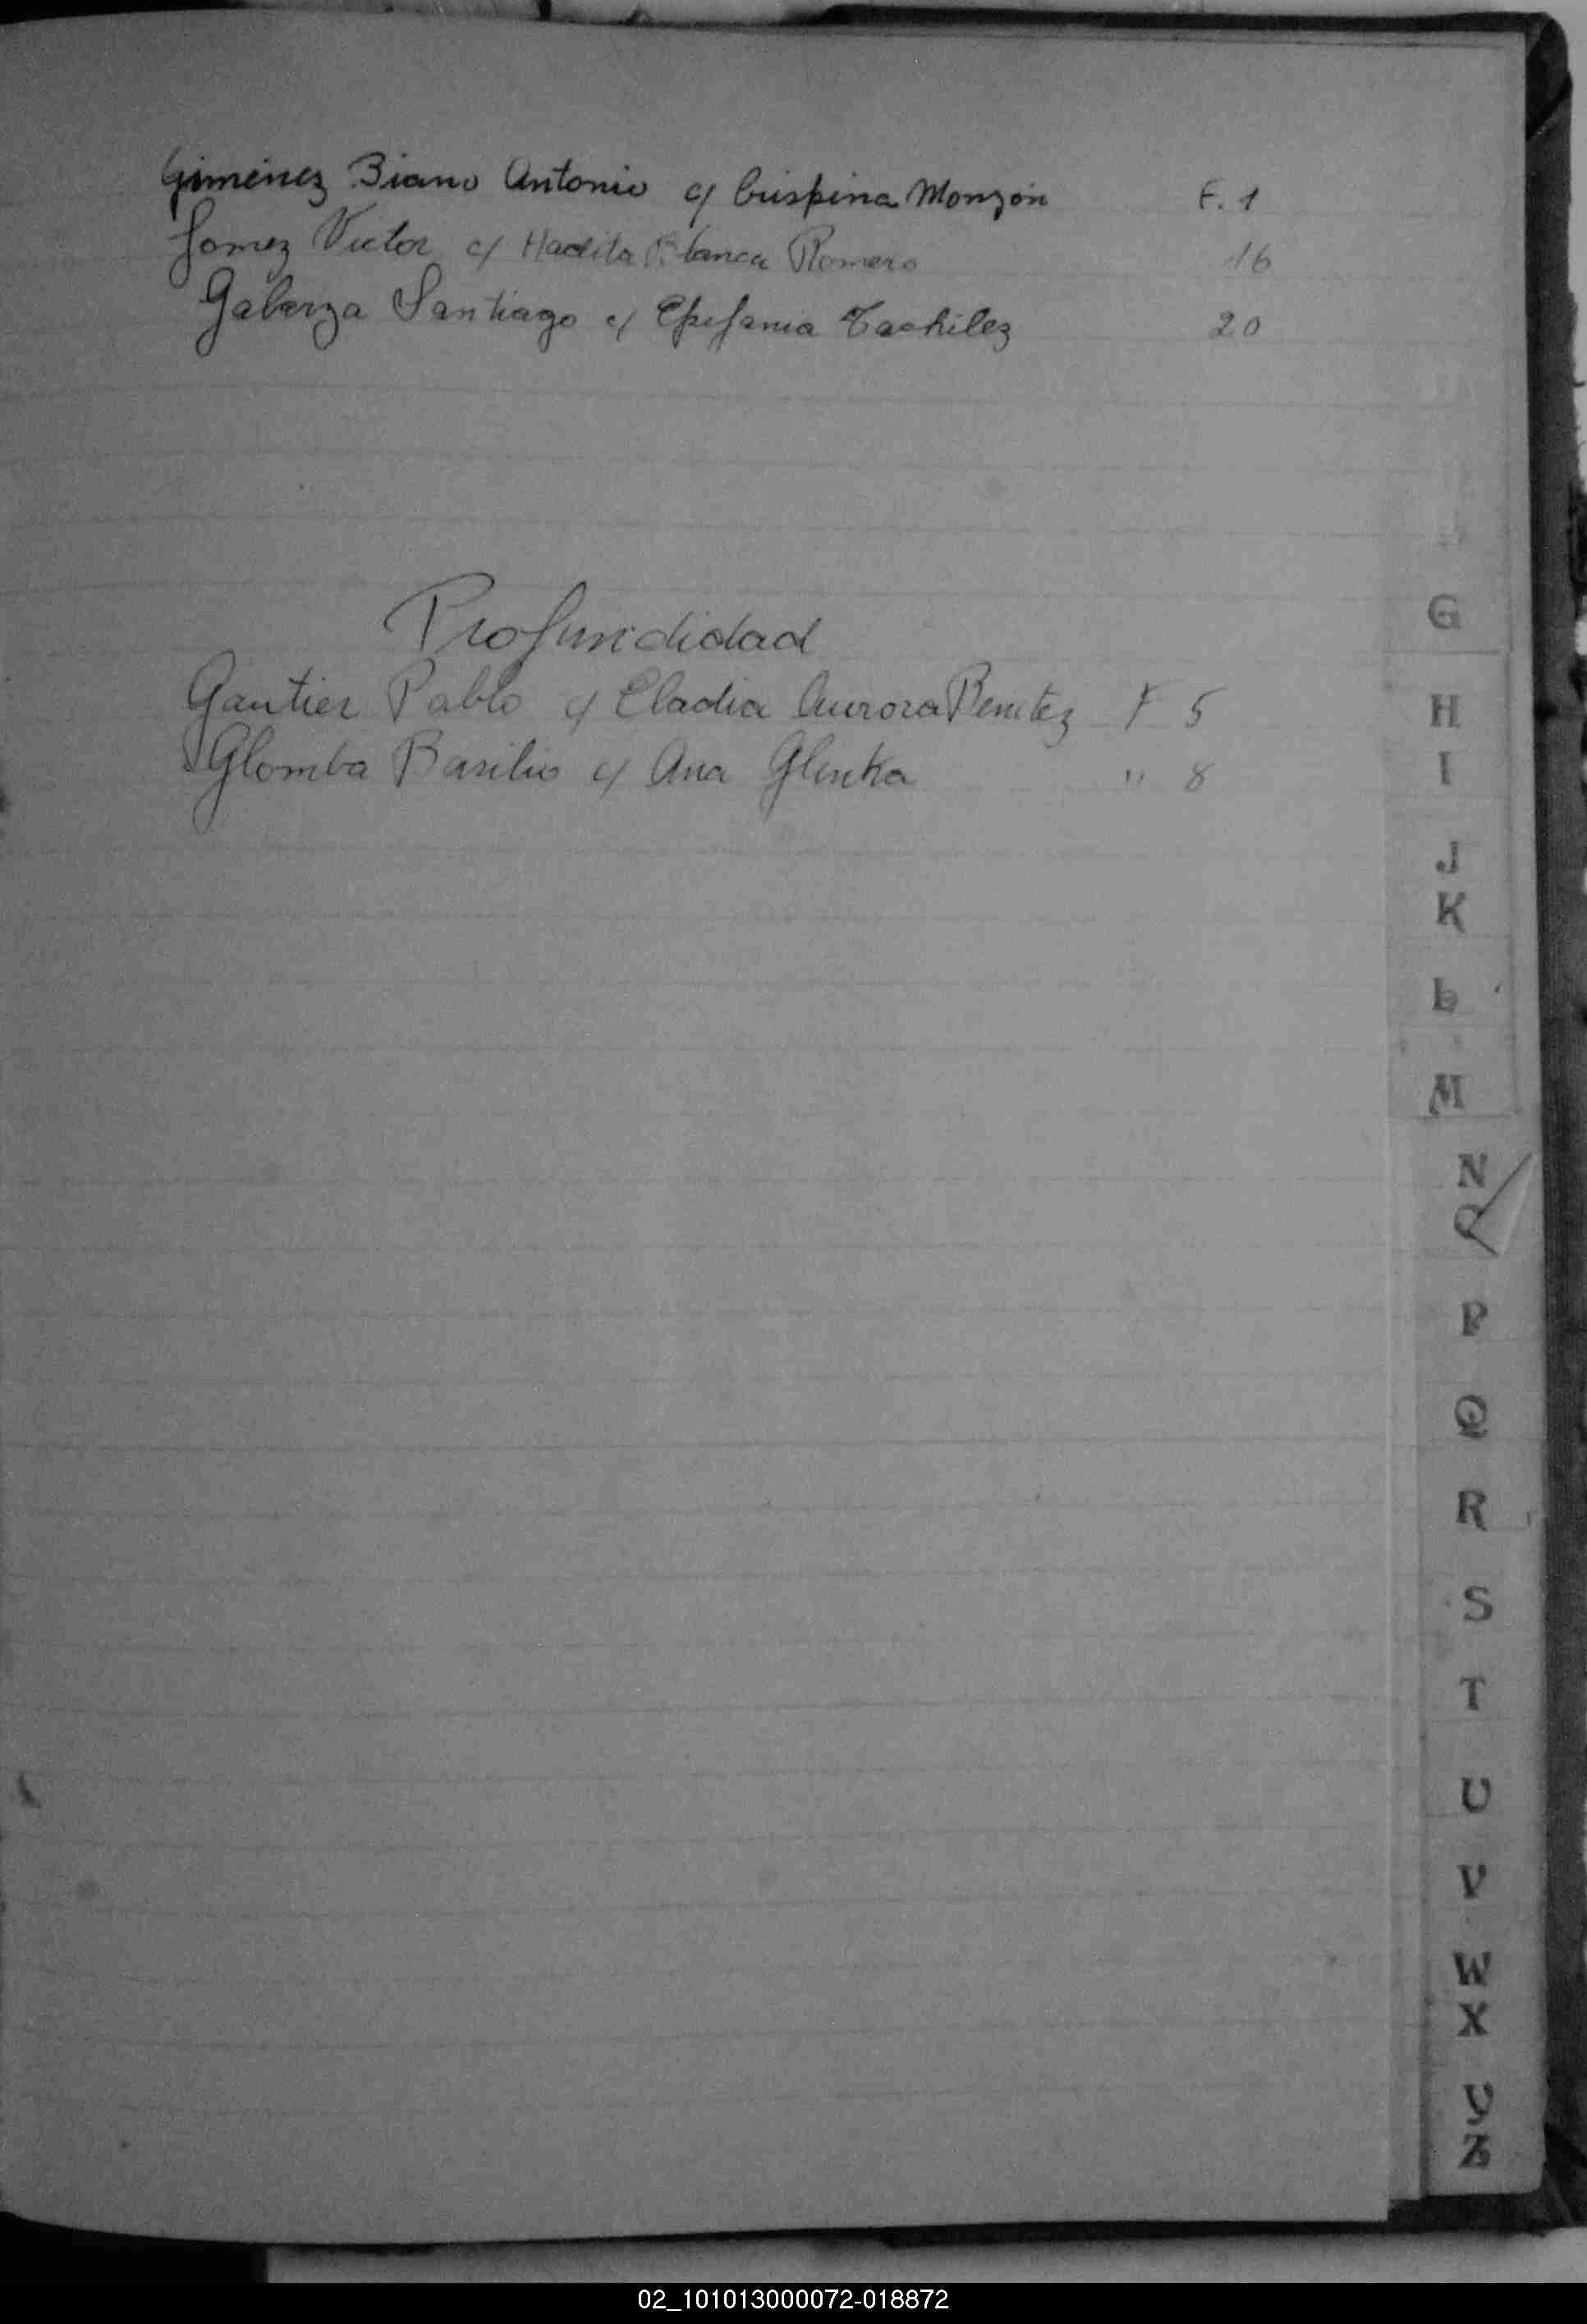 Gimenez Biano Antonio c/ Crispina Monzón F. 1
Gomez Victor c/ Hadita Blanca Romero 16
Galarza Santiago c/ Epifania 20
Profundidad
Gautier Pablo c/ Eladia Aurora Benitez F 5
Glomba Basilio c/ Ana Glinka " 8
G
H
I
J
K
L
M
N
O
P
Q
R
S
T
U
V
W
X
Y
Z
02_101013000072-018872